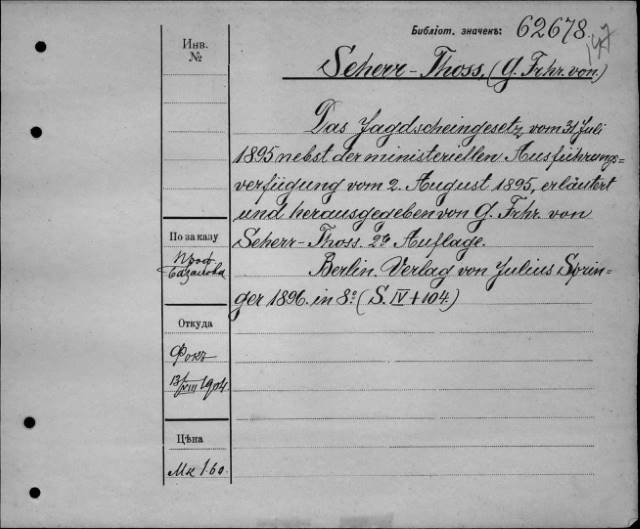 Библіот. значекъ: 62678.
147
Инв.
№
Scherr-Thoss. (G. Frhr. von.)
Das Jagdscheingesetz vom 31 Juli
1895 nebst der ministeriellen Ausführungs-
verfügung vom 2. August 1895, erläutert
und herausgegeben von G. Frhr. von
Scherr-Thoss. 2te Auflage.
Berlin. Verlag von Julius Sprin-
ger 1896. in 8º. (S. IV + 104.)
По заказу
Проф.
Базанова
Откуда
Фокъ
13/VIII 1904.
Цѣна
Мк 1.60.